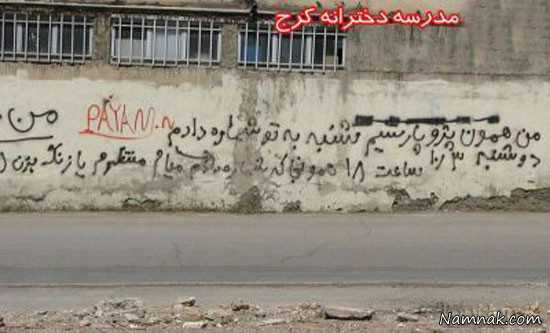 مدرسه دخترانه کرج
من همون پژو پارسیم شنبه به تو شماره دادم
PAYAM.n
من
دوشنبه ۳ تا ساعت ۱۸ همونجا که شماره دادم میام منتظرم یا زنگ بزن
Namnak.com